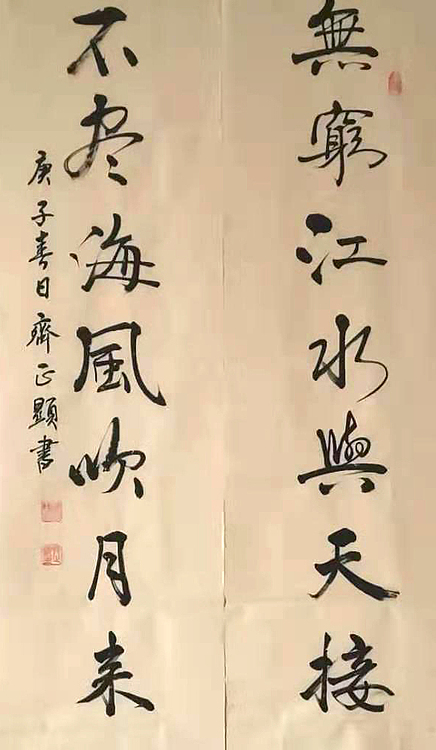 無窮江水與天接
不盡海風吹月来
庚子春日齊正顯書